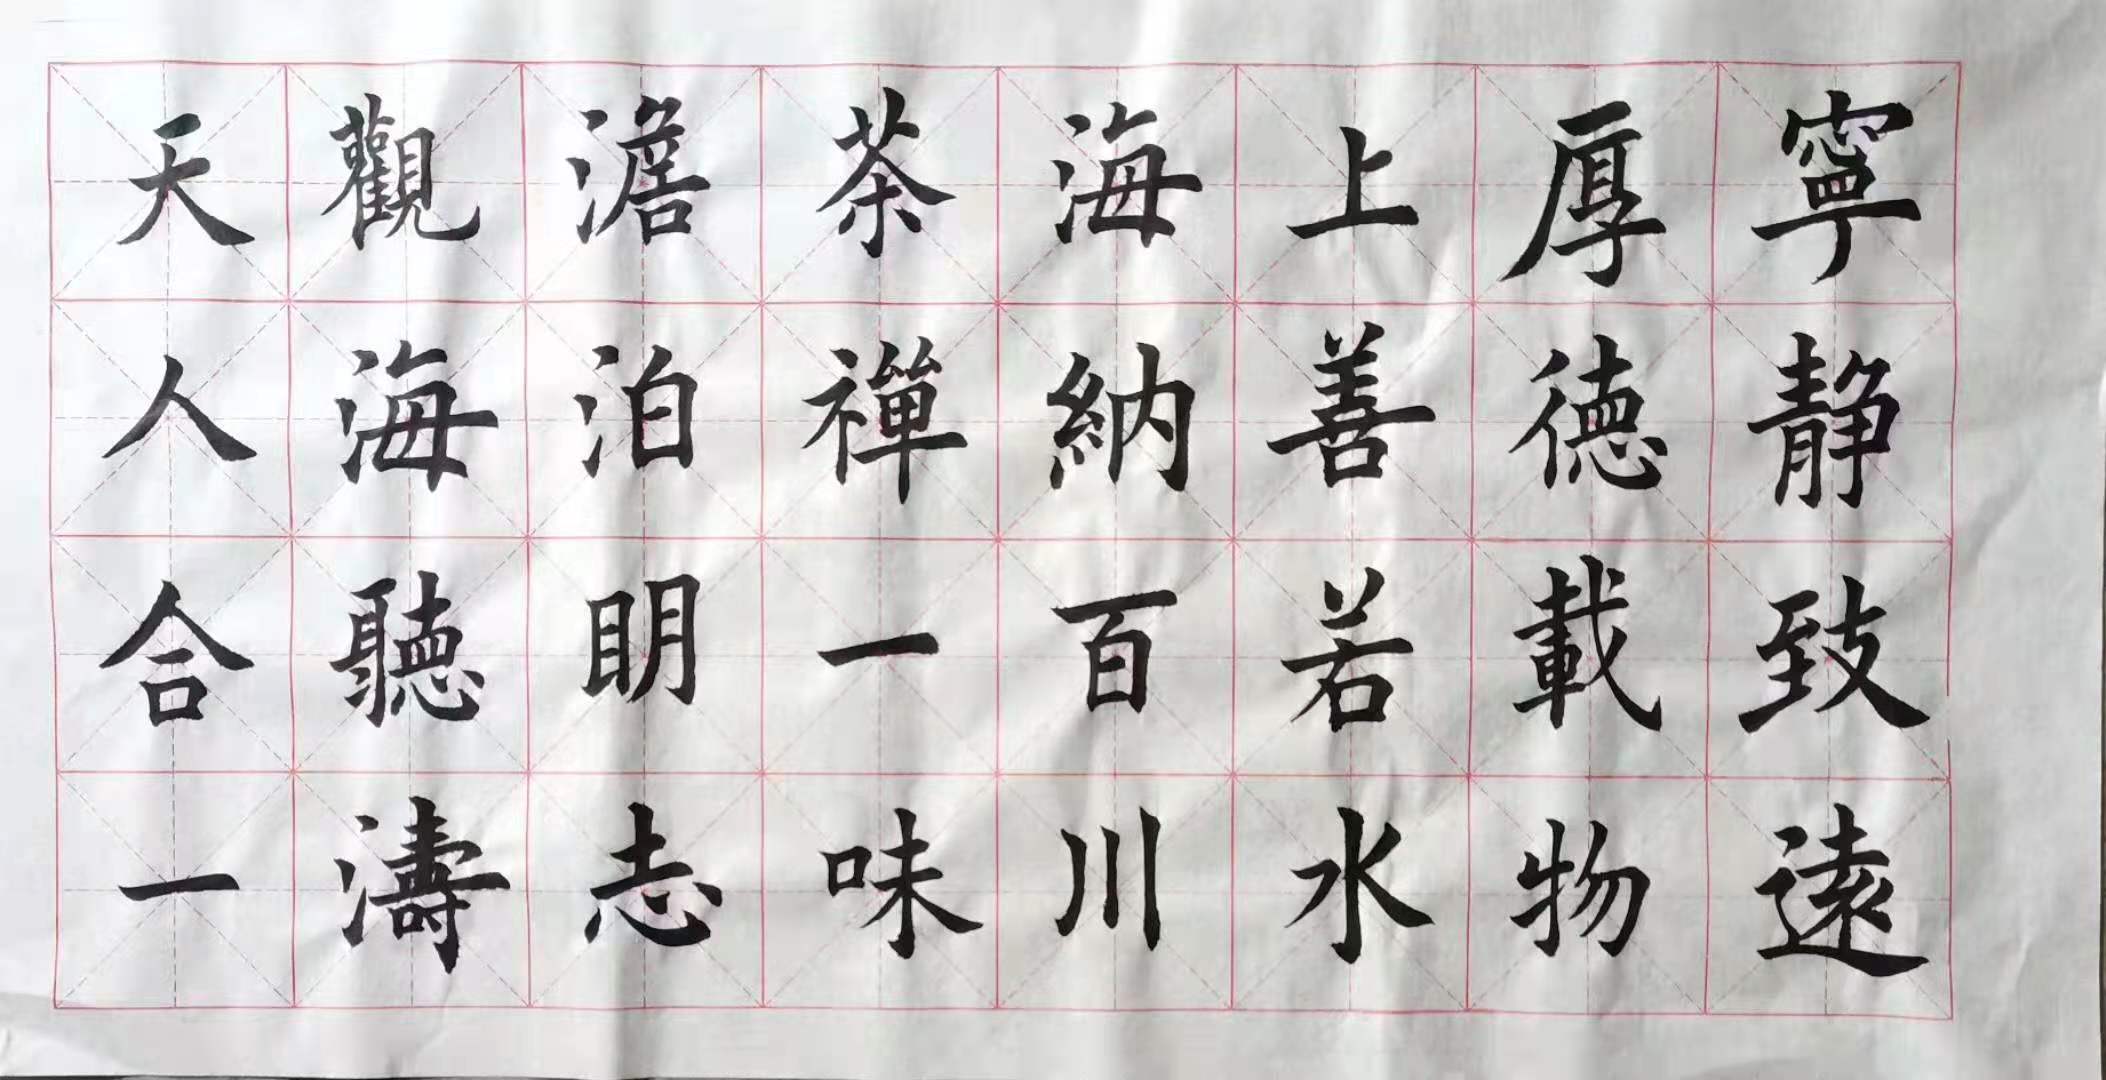 寧静致遠
厚德載物
上善若水
海納百川
茶禪一味
澹泊明志
觀海聽濤
天人合一